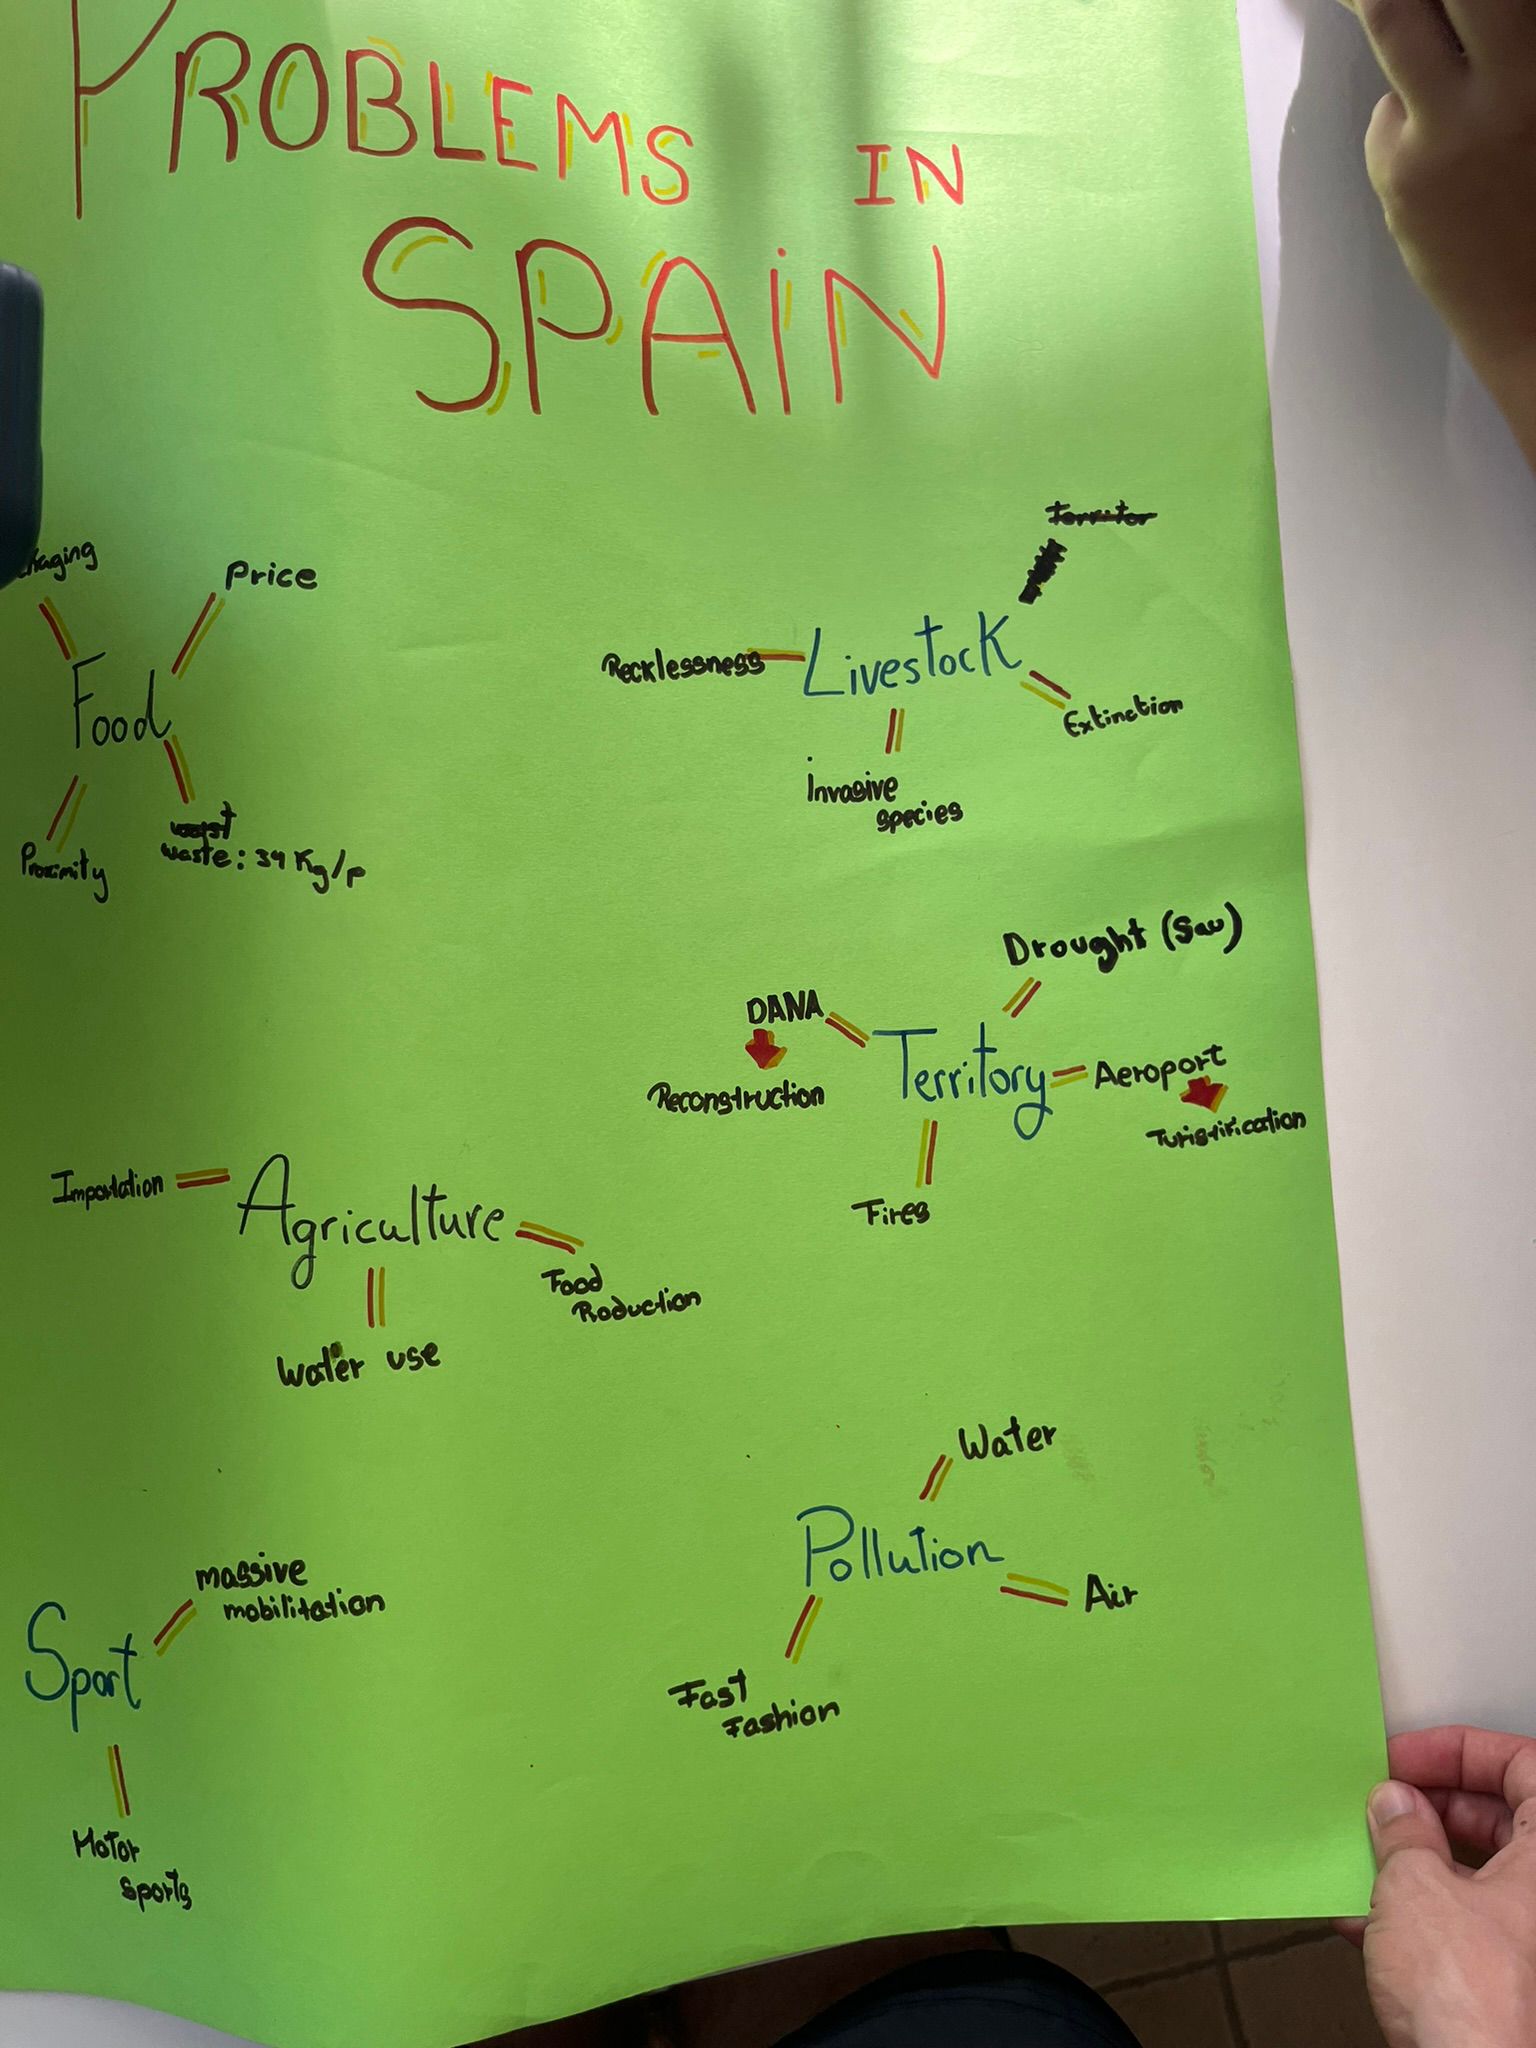 PROBLEMS IN
SPAIN
Price
Food
Proximity
waste: 34 Kg/p
Livestock
Recklessness
Extinction
Invasive
species
Drought (Sau)
DANA
Reconstruction
Territory
Aeroport
Turistification
Fires
Importation
Agriculture
Food
Production
Water use
Water
Pollution
Air
Fast
Fashion
massive
mobilitation
Sport
Motor
sports